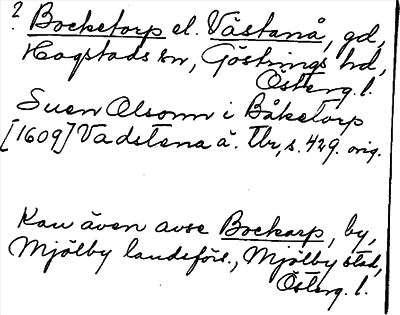 ? Bocketorp el. Västanå, gd,
Hogstads sn, Göstrings hd,
Österg. l.
Suen Olsonn i Båketorp
[1609] Vadstena ä. Tbr, s. 429. orig.
Kan även avse Bockarp, by,
Mjölby landsförs., Mjölby stad,
Österg. l.